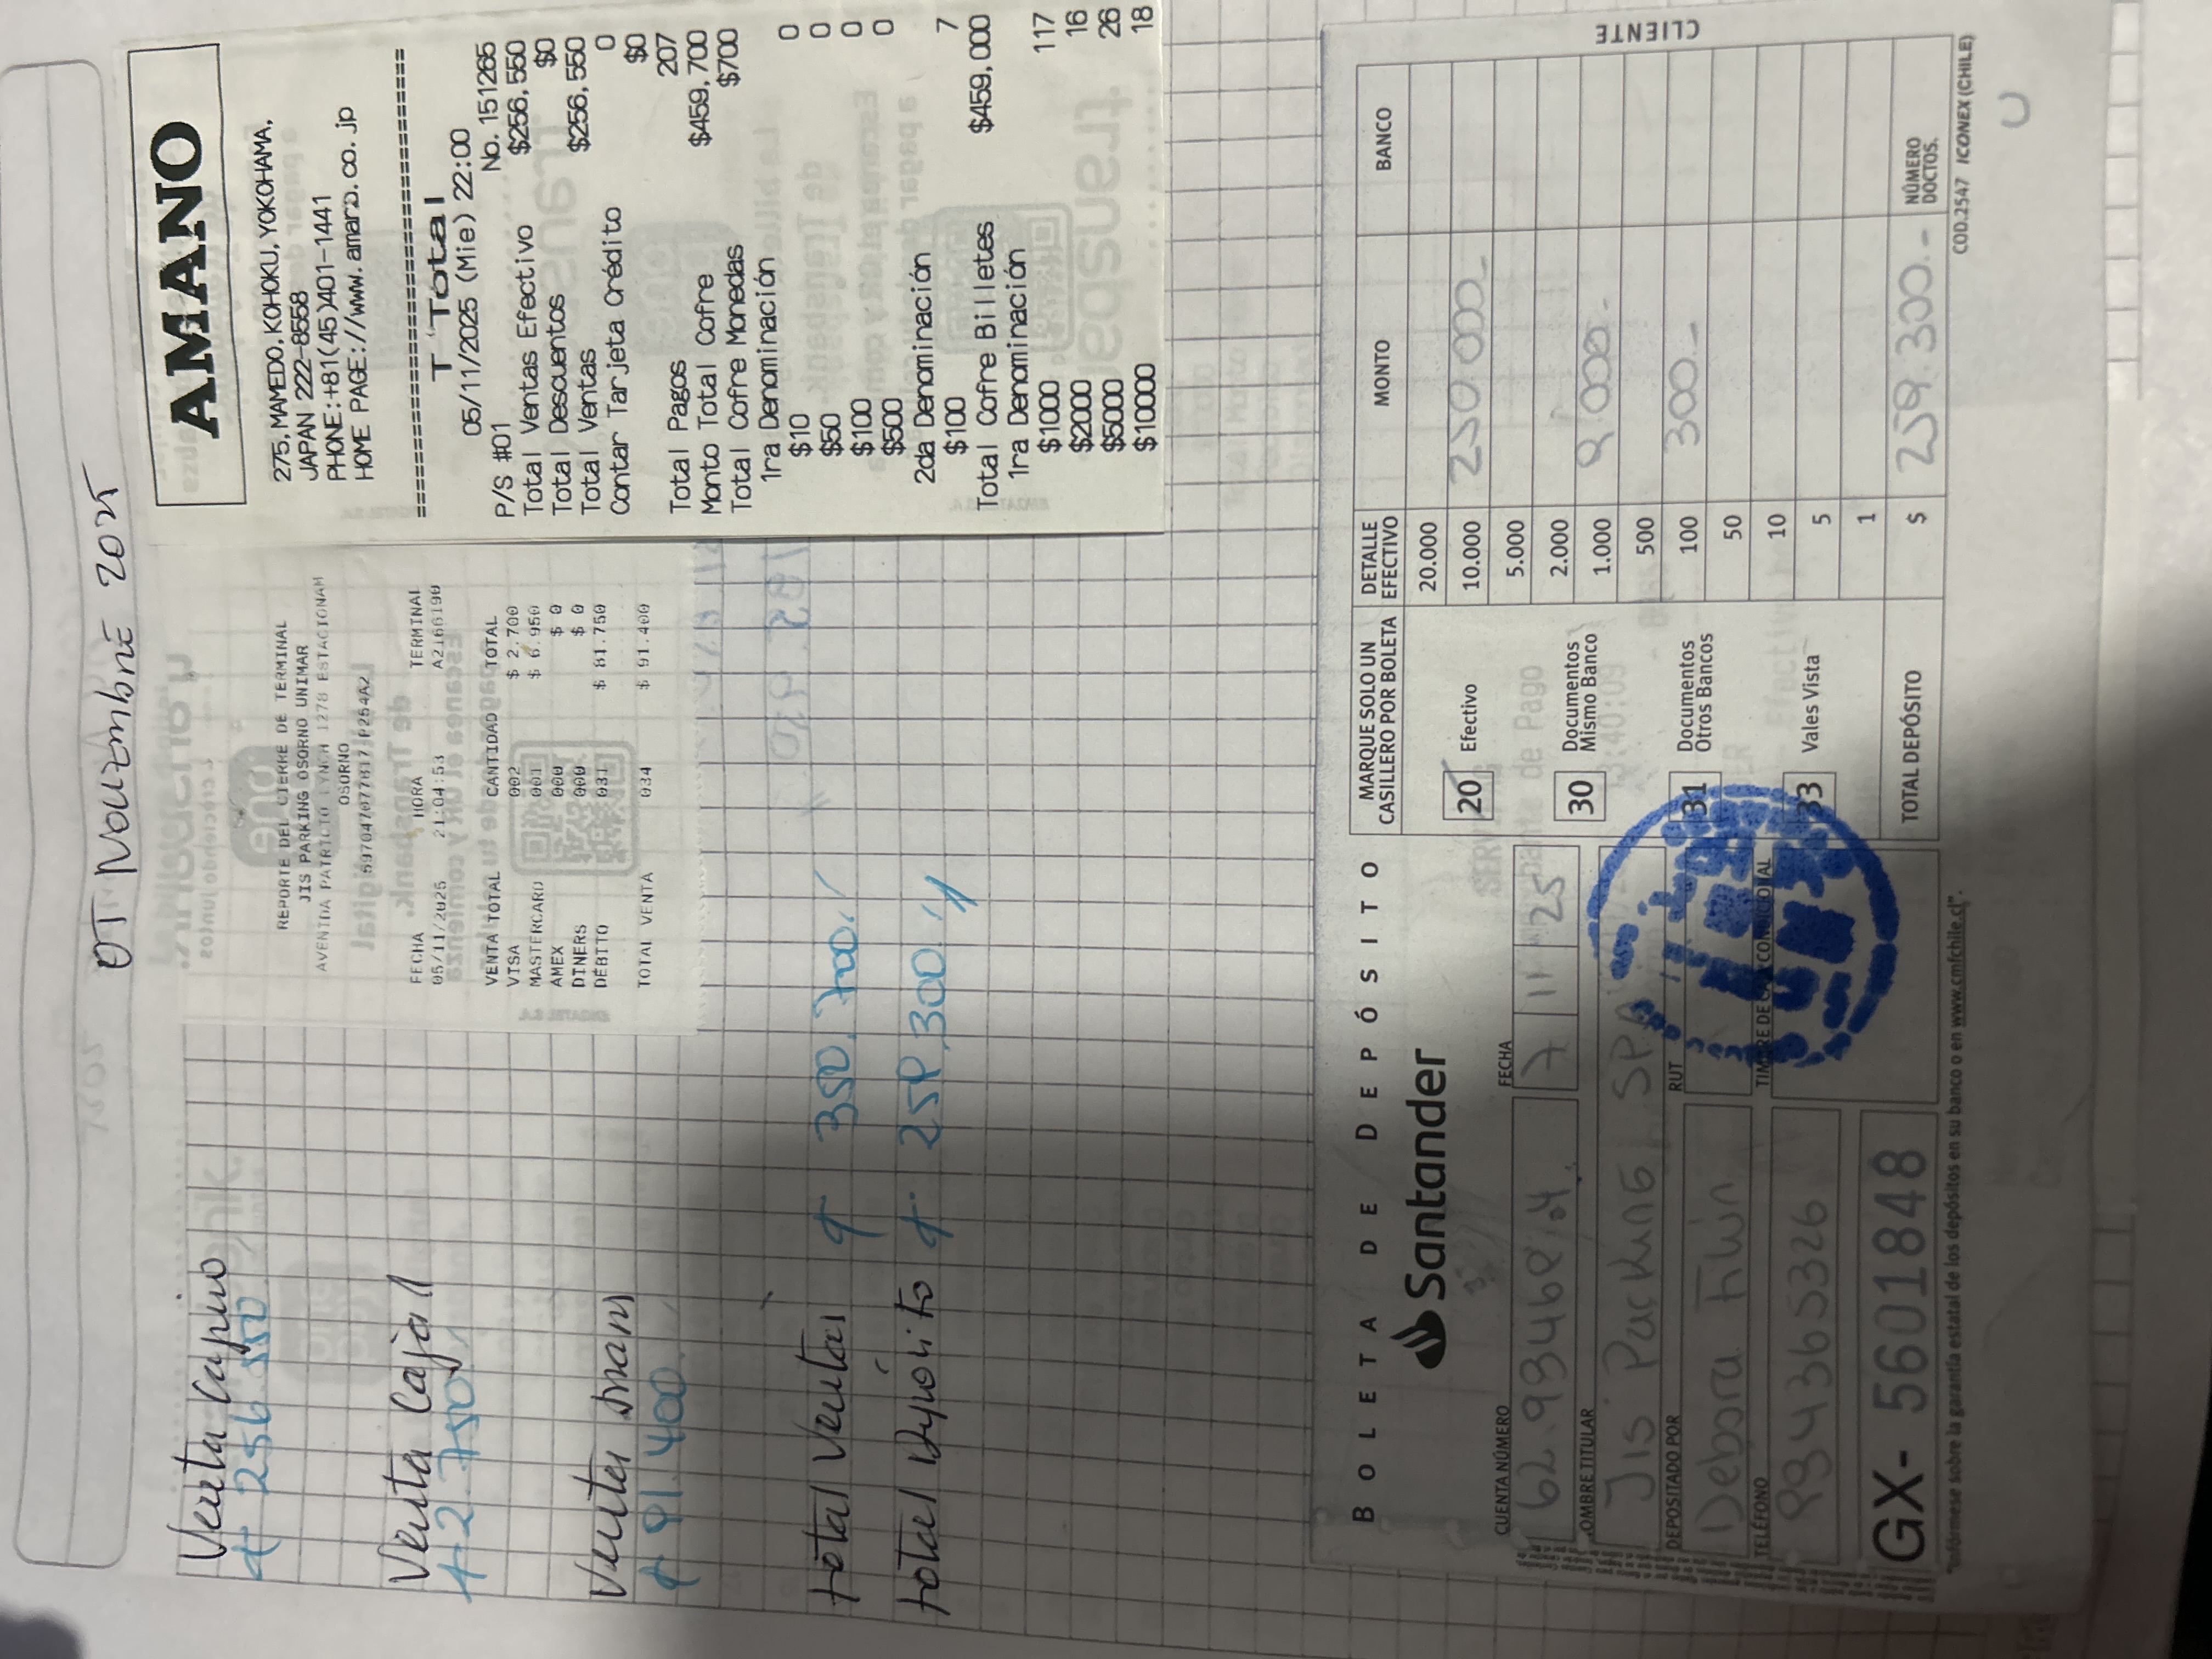 05 Noviembre 2025
Venta Cajero
$ 256.550
Venta Caja 11
$ 2.750
Ventas trans
$ 91.400
total Ventas $ 350.700
total Depósito $ 259.300
REPORTE DEL CIERRE DE TERMINAL
JIS PARKING OSORNO UNIMAR
AVENIDA PATRICIO LYNCH 1278 ESTACIONAM
OSORNO
FECHA HORA TERMINAL
05/11/2025 21:04:53
VENTA TOTAL CANTIDAD TOTAL
VISA 002 $ 2.700
MASTERCARD 001 $ 6.950
AMEX 000 $ 0
DINERS 000 $ 0
DEBITO 031 $ 81.750
TOTAL VENTA 034 $ 91.400
AMANO
275, MAMEDO, KOHOKU, YOKOHAMA,
JAPAN 222-8558
PHONE:+81(45)401-1441
HOME PAGE://www.amano.co.jp
==============================
T Total
05/11/2025 (Mie) 22:00
P/S #01 No. 151265
Total Ventas Efectivo $256,550
Total Descuentos $0
Total Ventas $256,550
Contar Tarjeta Crédito 0
$0
Total Pagos 207
Monto Total Cofre $459,700
Total Cofre Monedas $700
1ra Denominación
$10 0
$50 0
$100 0
$500 0
2da Denominación
$100 7
Total Cofre Billetes $459,000
1ra Denominación
$1000 117
$2000 16
$5000 26
$10000 18
BOLETA DE DEPÓSITO
Santander
CUENTA NÚMERO
FECHA
7 11 25
NOMBRE TITULAR
Jis Parking SPA
DEPOSITADO POR
Debora
RUT
TELÉFONO
984365326
TIMBRE DE CAJA CON
GX- 5601848
MARQUE SOLO UN
CASILLERO POR BOLETA
20 Efectivo
30 Documentos
Mismo Banco
31 Documentos
Otros Bancos
33 Vales Vista
DETALLE
EFECTIVO MONTO BANCO
20.000
10.000 250.000.-
5.000
2.000
1.000 9.000.-
500
100 300.-
50
10
5
1
TOTAL DEPÓSITO $ 259.300.- NÚMERO
DOCTOS.
CLIENTE
"Infórmese sobre la garantía estatal de los depósitos en su banco o en www.cmfchile.cl".
COD.2547 ICONEX (CHILE)